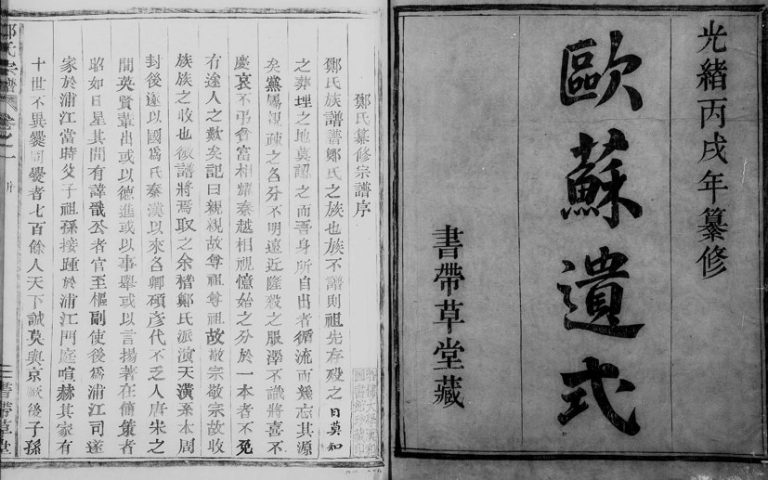 光緒丙戌年纂修
歐蘇遺式
書帶草堂藏
鄭氏纂修宗譜序
鄭氏族譜譜鄭氏之族也族不譜則祖先存歿之日莫知
之葬埋之地莫認之而吾身所自出者循流而幾忘其源
矣黨屬親疎之名分不明遠近隆殺之服澤不識將喜不
慶哀不弔貧富相耀秦越相視憶始之分於一本者不免
有途人之歎矣記曰親親故尊祖尊祖故敬宗敬宗故收
族族之收也微譜將焉取之余稽鄭氏派演天潢系本周
封後遂以國爲氏秦漢以來名卿碩彥代不乏人唐宋之
間英賢輩出或以德進或以事舉或以言揚著在簡策者
昭如日星其間有諱戩公者官至樞副使後爲浦江司遂
家於浦江當時父子祖孫接踵於浦江門庭喧赫其家有
十世不異爨同爨者七百餘人天下誠莫與京厥後子孫
鄭氏宗譜 卷之一 序
二 書帶草堂